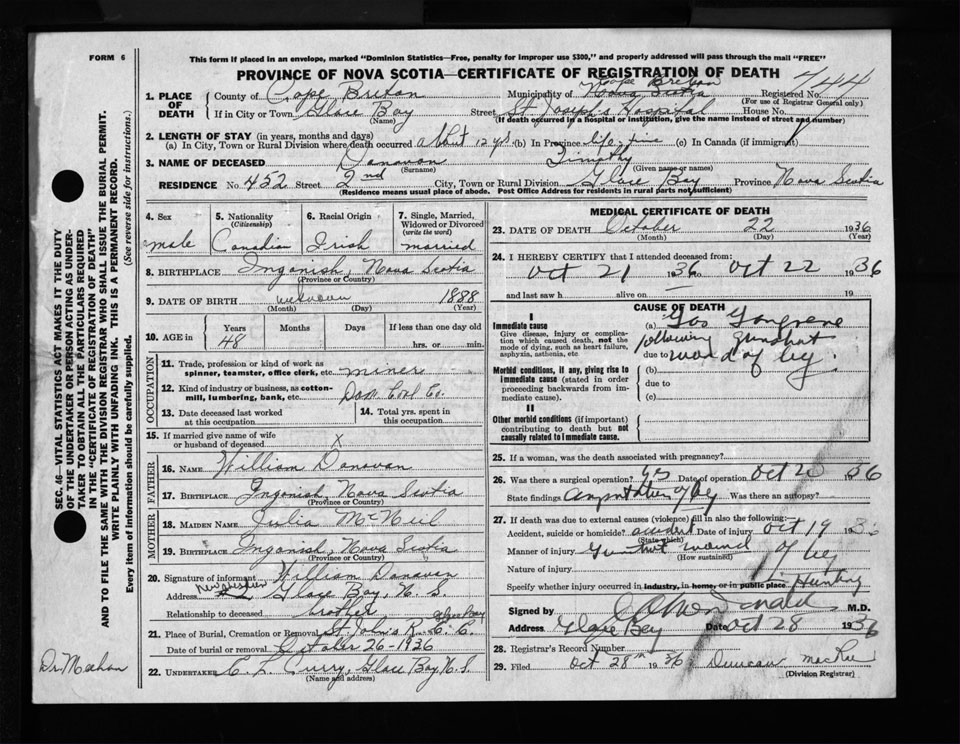 FORM 6
This form if placed in an envelope, marked "Dominion Statistics—Free, penalty for improper use $300," and properly addressed will pass through the mail "FREE"
PROVINCE OF NOVA SCOTIA—CERTIFICATE OF REGISTRATION OF DEATH
1. PLACE OF DEATH
County of Cape Breton Municipality of Cape Breton Nova Scotia Registered No.
(For use of Registrar General only)
If in City or Town Glace Bay Street St Joseph's Hospital House No.
(Name) (If death occurred in a hospital or institution, give the name instead of street and number)
2. LENGTH OF STAY (in years, months and days)
(a) In City, Town or Rural Division where death occurred about 12 yrs. (b) In Province life time (c) In Canada (if immigrant)
3. NAME OF DECEASED Donovan Timothy
(Surname) (Given name or names)
RESIDENCE No. 452 Street 2nd City, Town or Rural Division Glace Bay Province Nova Scotia
(Residence means usual place of abode. Post Office Address for residents in rural parts not sufficient)
4. Sex male
5. Nationality (Citizenship) Canadian
6. Racial Origin Irish
7. Single, Married, Widowed or Divorced (write the word) married
8. BIRTHPLACE Ingonish, Nova Scotia
(Province or Country)
9. DATE OF BIRTH 1888
(Month) (Day) (Year)
10. AGE in Years 48 Months Days If less than one day old hrs. or min.
OCCUPATION
11. Trade, profession or kind of work as spinner, teamster, office clerk, etc. miner
12. Kind of industry or business, as cotton-mill, lumbering, bank, etc. Dom Coal Co.
13. Date deceased last worked at this occupation
14. Total yrs. spent in this occupation
15. If married give name of wife or husband of deceased X
FATHER
16. NAME William Donovan
17. BIRTHPLACE Ingonish, Nova Scotia
(Province or Country)
MOTHER
18. MAIDEN NAME Julia McNeil
19. BIRTHPLACE Ingonish, Nova Scotia
(Province or Country)
20. Signature of informant William Donovan
Address Glace Bay, N. S.
Relationship to deceased brother
21. Place of Burial, Cremation or Removal St. John's R. C. C. Glace Bay
Date of burial or removal October 26-1936
22. UNDERTAKER C. L. Curry, Glace Bay, N. S.
(Name and address)
MEDICAL CERTIFICATE OF DEATH
23. DATE OF DEATH October 22 1936
(Month) (Day) (Year)
24. I HEREBY CERTIFY that I attended deceased from:
Oct 21 1936 to Oct 22 1936
and last saw h alive on 19
CAUSE OF DEATH
I
Immediate cause
Give disease, injury or complication which caused death, not the mode of dying, such as heart failure, asphyxia, asthenia, etc
(a) Gas Gangrene
following gunshot
due to wound of leg.
Morbid conditions, if any, giving rise to immediate cause (stated in order proceeding backwards from immediate cause).
(b)
due to
(c)
II
Other morbid conditions (if important) contributing to death but not causally related to immediate cause.
25. If a woman, was the death associated with pregnancy?
26. Was there a surgical operation? yes Date of operation Oct 20 1936
State findings amputation of leg Was there an autopsy?
27. If death was due to external causes (violence) fill in also the following:
Accident, suicide or homicide? accident Date of injury Oct 19 193
(State which)
Manner of injury Gunshot wound of leg
(How sustained)
Nature of injury
Specify whether injury occurred in industry, in home, or in public place Hunting
Signed by M.D.
Address Glace Bay Date Oct 28 1936
28. Registrar's Record Number
29. Filed Oct 28th 1936 Duncan MacRae
(Division Registrar)
SEC. 46—VITAL STATISTICS ACT MAKES IT THE DUTY OF THE UNDERTAKER OR PERSON ACTING AS UNDERTAKER TO OBTAIN ALL THE PARTICULARS REQUIRED IN THE "CERTIFICATE OF REGISTRATION OF DEATH"
AND TO FILE THE SAME WITH THE DIVISION REGISTRAR WHO SHALL ISSUE THE BURIAL PERMIT.
WRITE PLAINLY WITH UNFADING INK. THIS IS A PERMANENT RECORD.
Every item of information should be carefully supplied. (See reverse side for instructions.)